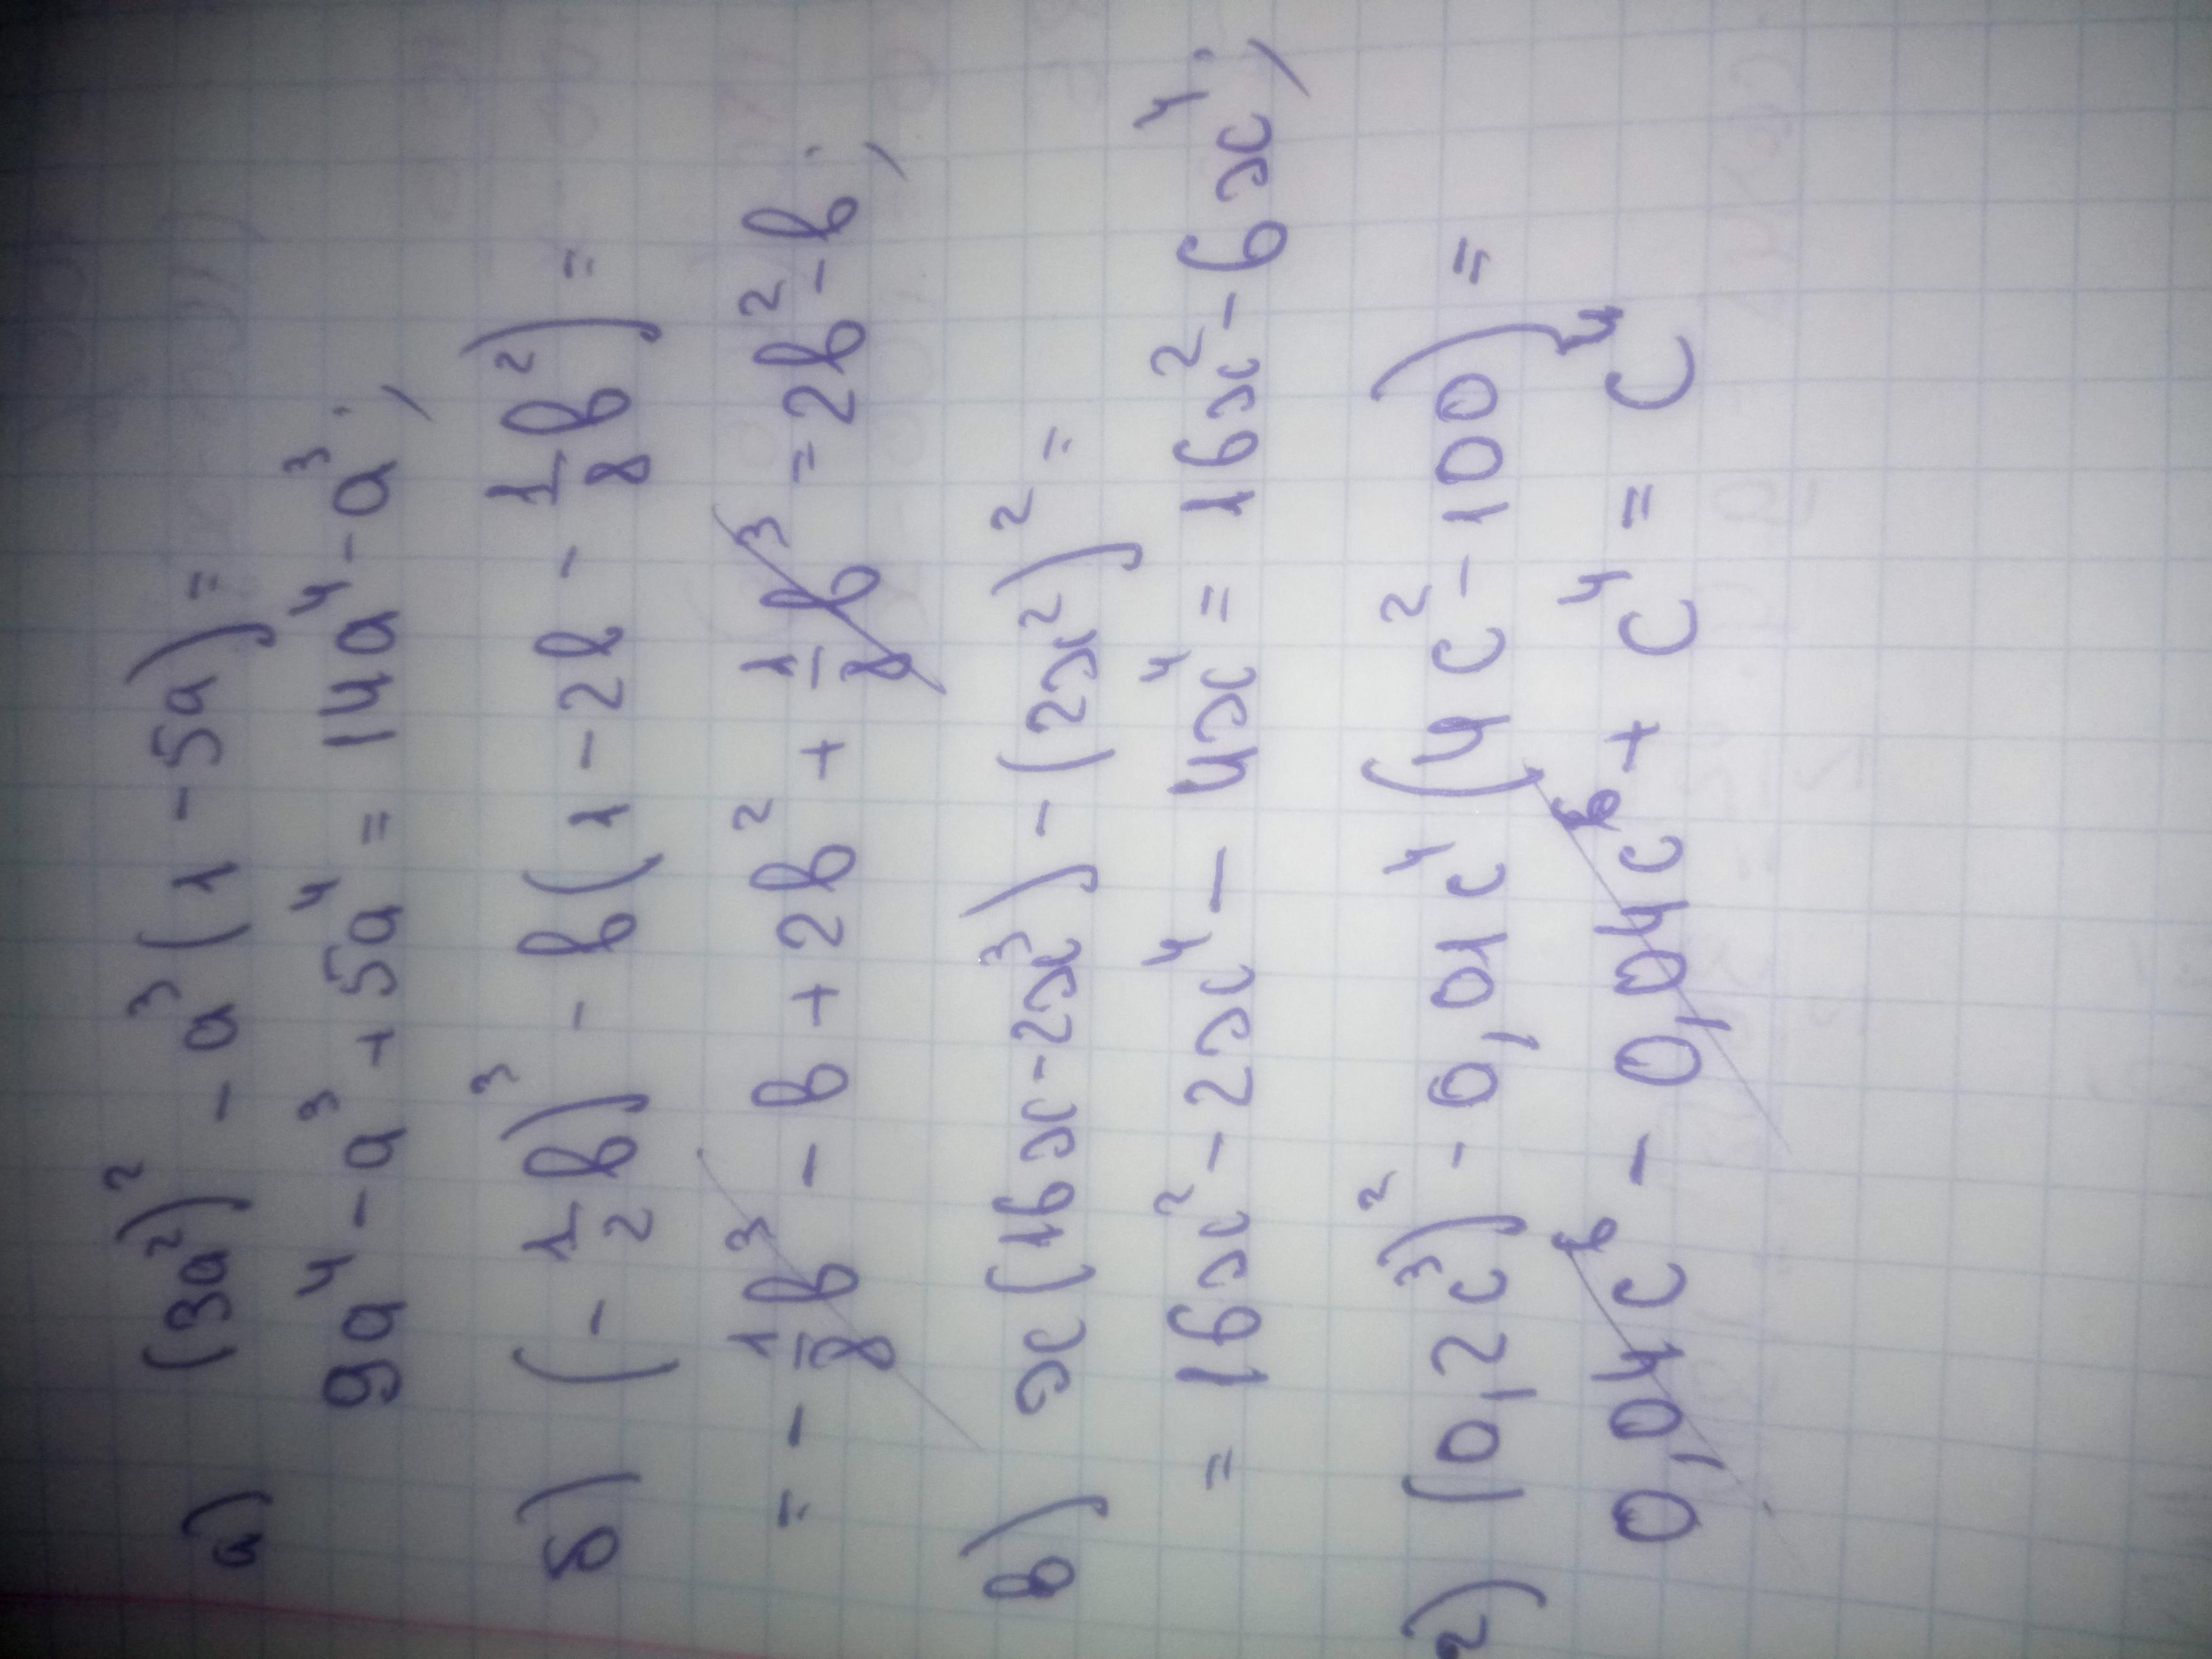 а) (3a²)² - a³(1 - 5a) =
9a⁴ - a³ + 5a⁴ = 14a⁴ - a³;
б) (-1/2 b)³ - b(1 - 2b - 1/8 b²) =
= -1/8 b³ - b + 2b² + 1/8 b³ = 2b² - b;
в) x(16x - 2x³) - (2x²)² =
= 16x² - 2x⁴ - 4x⁴ = 16x² - 6x⁴;
г) (0,2c³)² - 0,01c⁴(4c² - 100) =
0,04c⁶ - 0,04c⁶ + c⁴ = c⁴